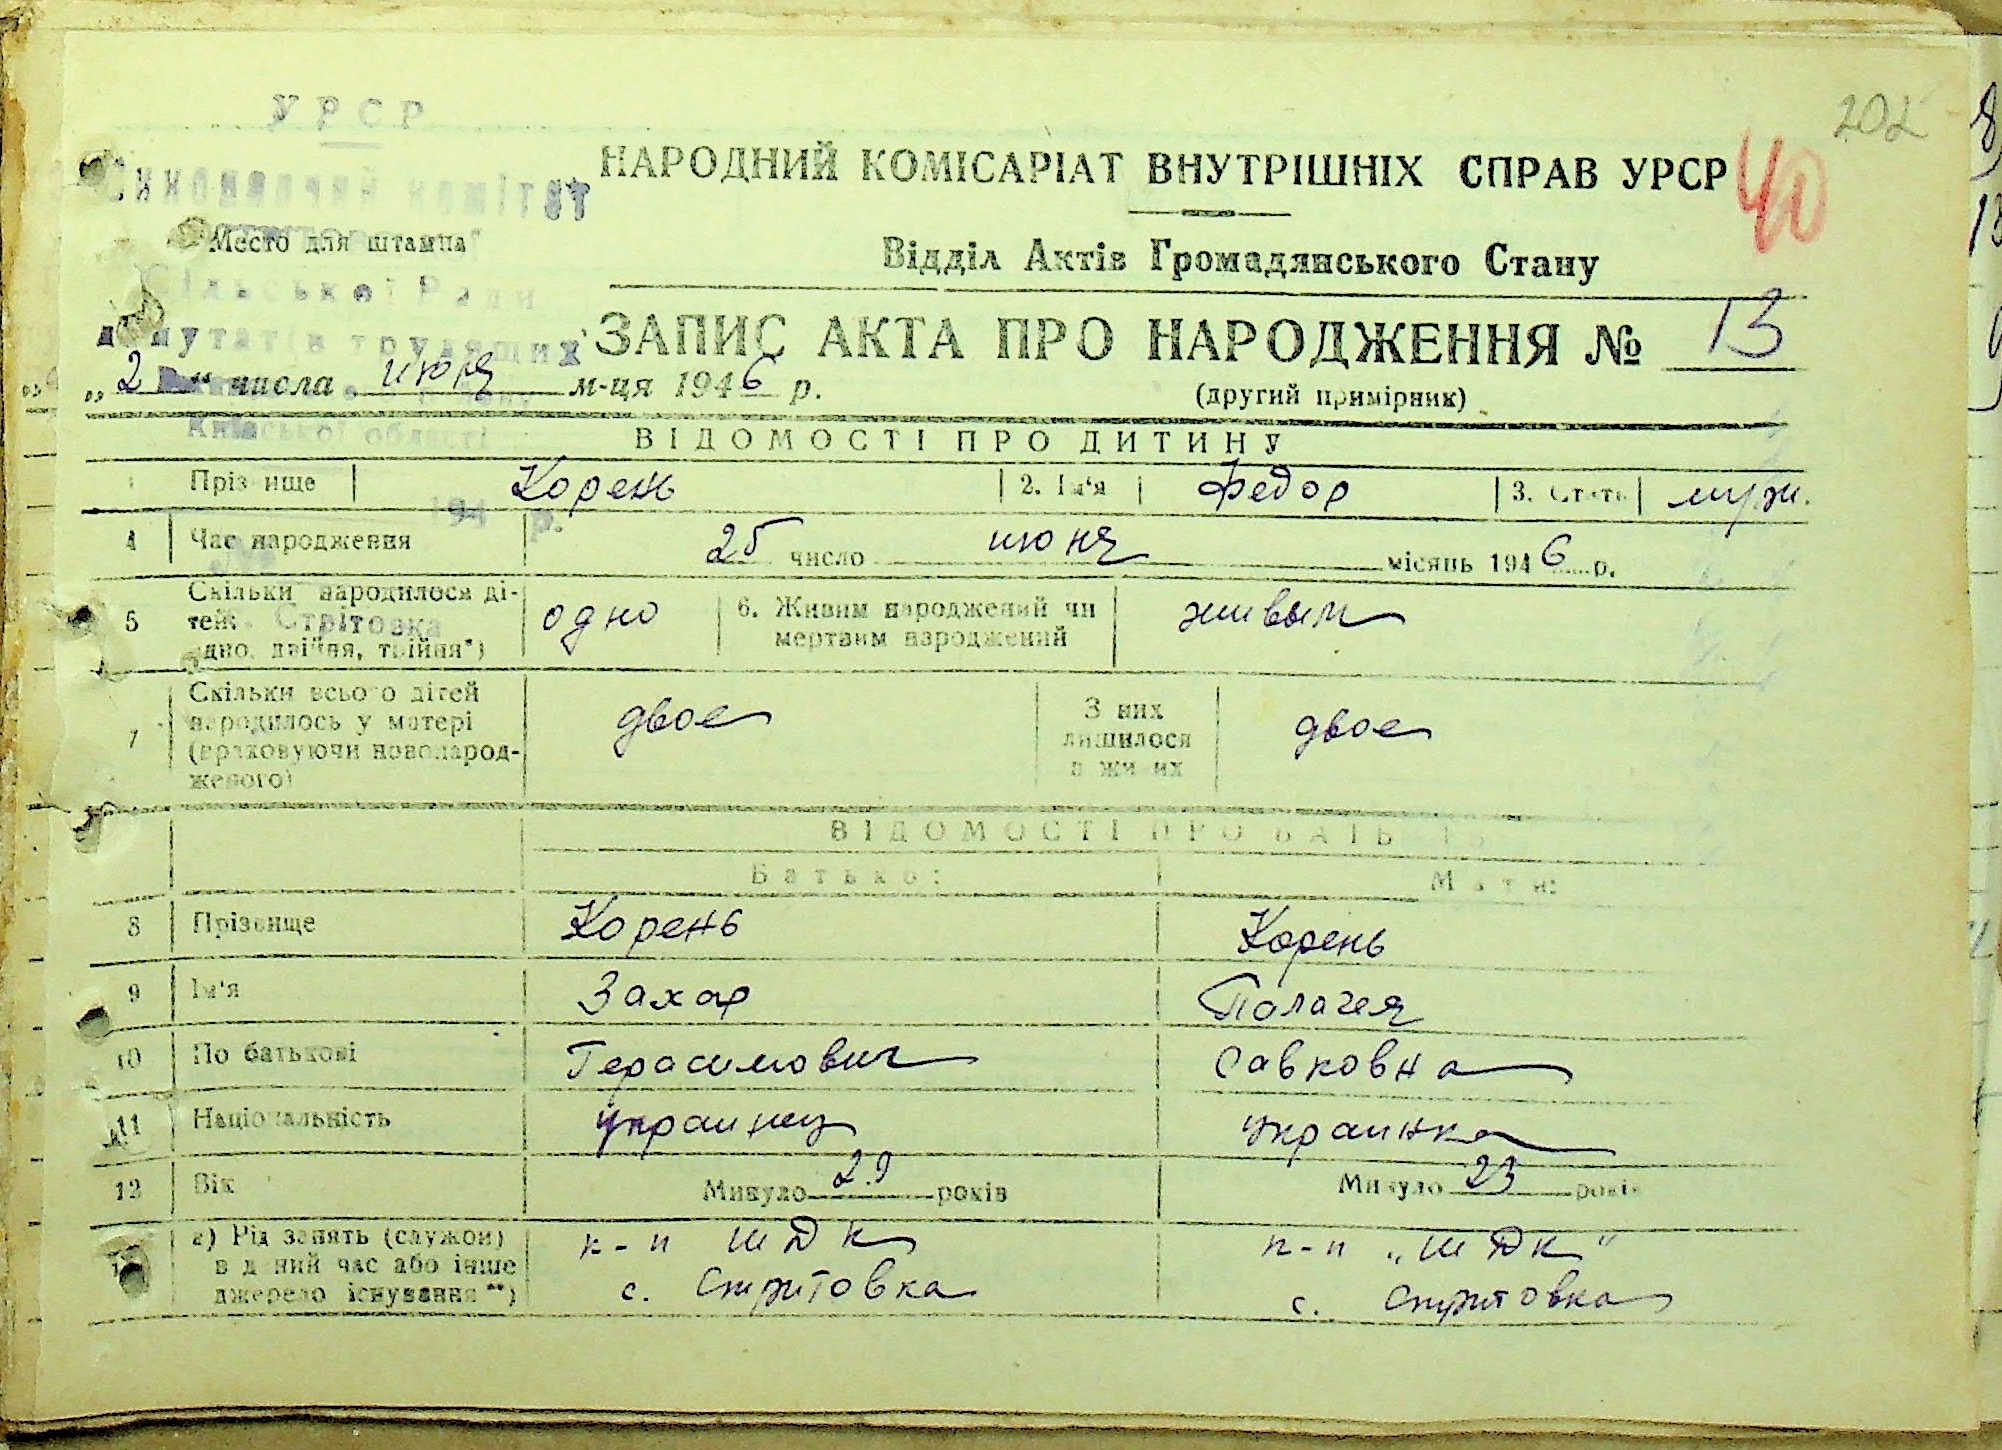 УРСР
202
Виконавчий комітет
НАРОДНИЙ КОМІСАРІАТ ВНУТРІШНІХ СПРАВ УРСР
40
Место для штампа
Відділ Актів Громадянського Стану
Сільської Ради
депутатів трудящих
ЗАПИС АКТА ПРО НАРОДЖЕННЯ № 13
„2 “ числа июня м-ця 1946 р.
(другий примірник)
Київської області
ВІДОМОСТІ ПРО ДИТИНУ
Прізвище Корень 2. Ім'я Федор 3. Стать муж.
194 р.
4 Час народження 25 число июня місяць 1946 р.
5 Скільки народилося дітей: одно, двійня, трійня*) одно 6. Живим народжений чи мертвим народжений живым
с. Стрітовка
7 Скільки всього дітей народилось у матері (враховуючи новонародженого) двое З них лишилося в живих двое
ВІДОМОСТІ ПРО БАТЬКІВ
Батько: Мати:
8 Прізвище Корень Корень
9 Ім'я Захар Палагея
10 По батькові Герасимович Савковна
11 Національність украинец украинка
12 Вік Минуло 29 років Минуло 23 років
а) Рід занять (служби) в даний час або інше джерело існування**) к-п ШДК с. Стритовка к-п „ШДК“ с. Стритовка